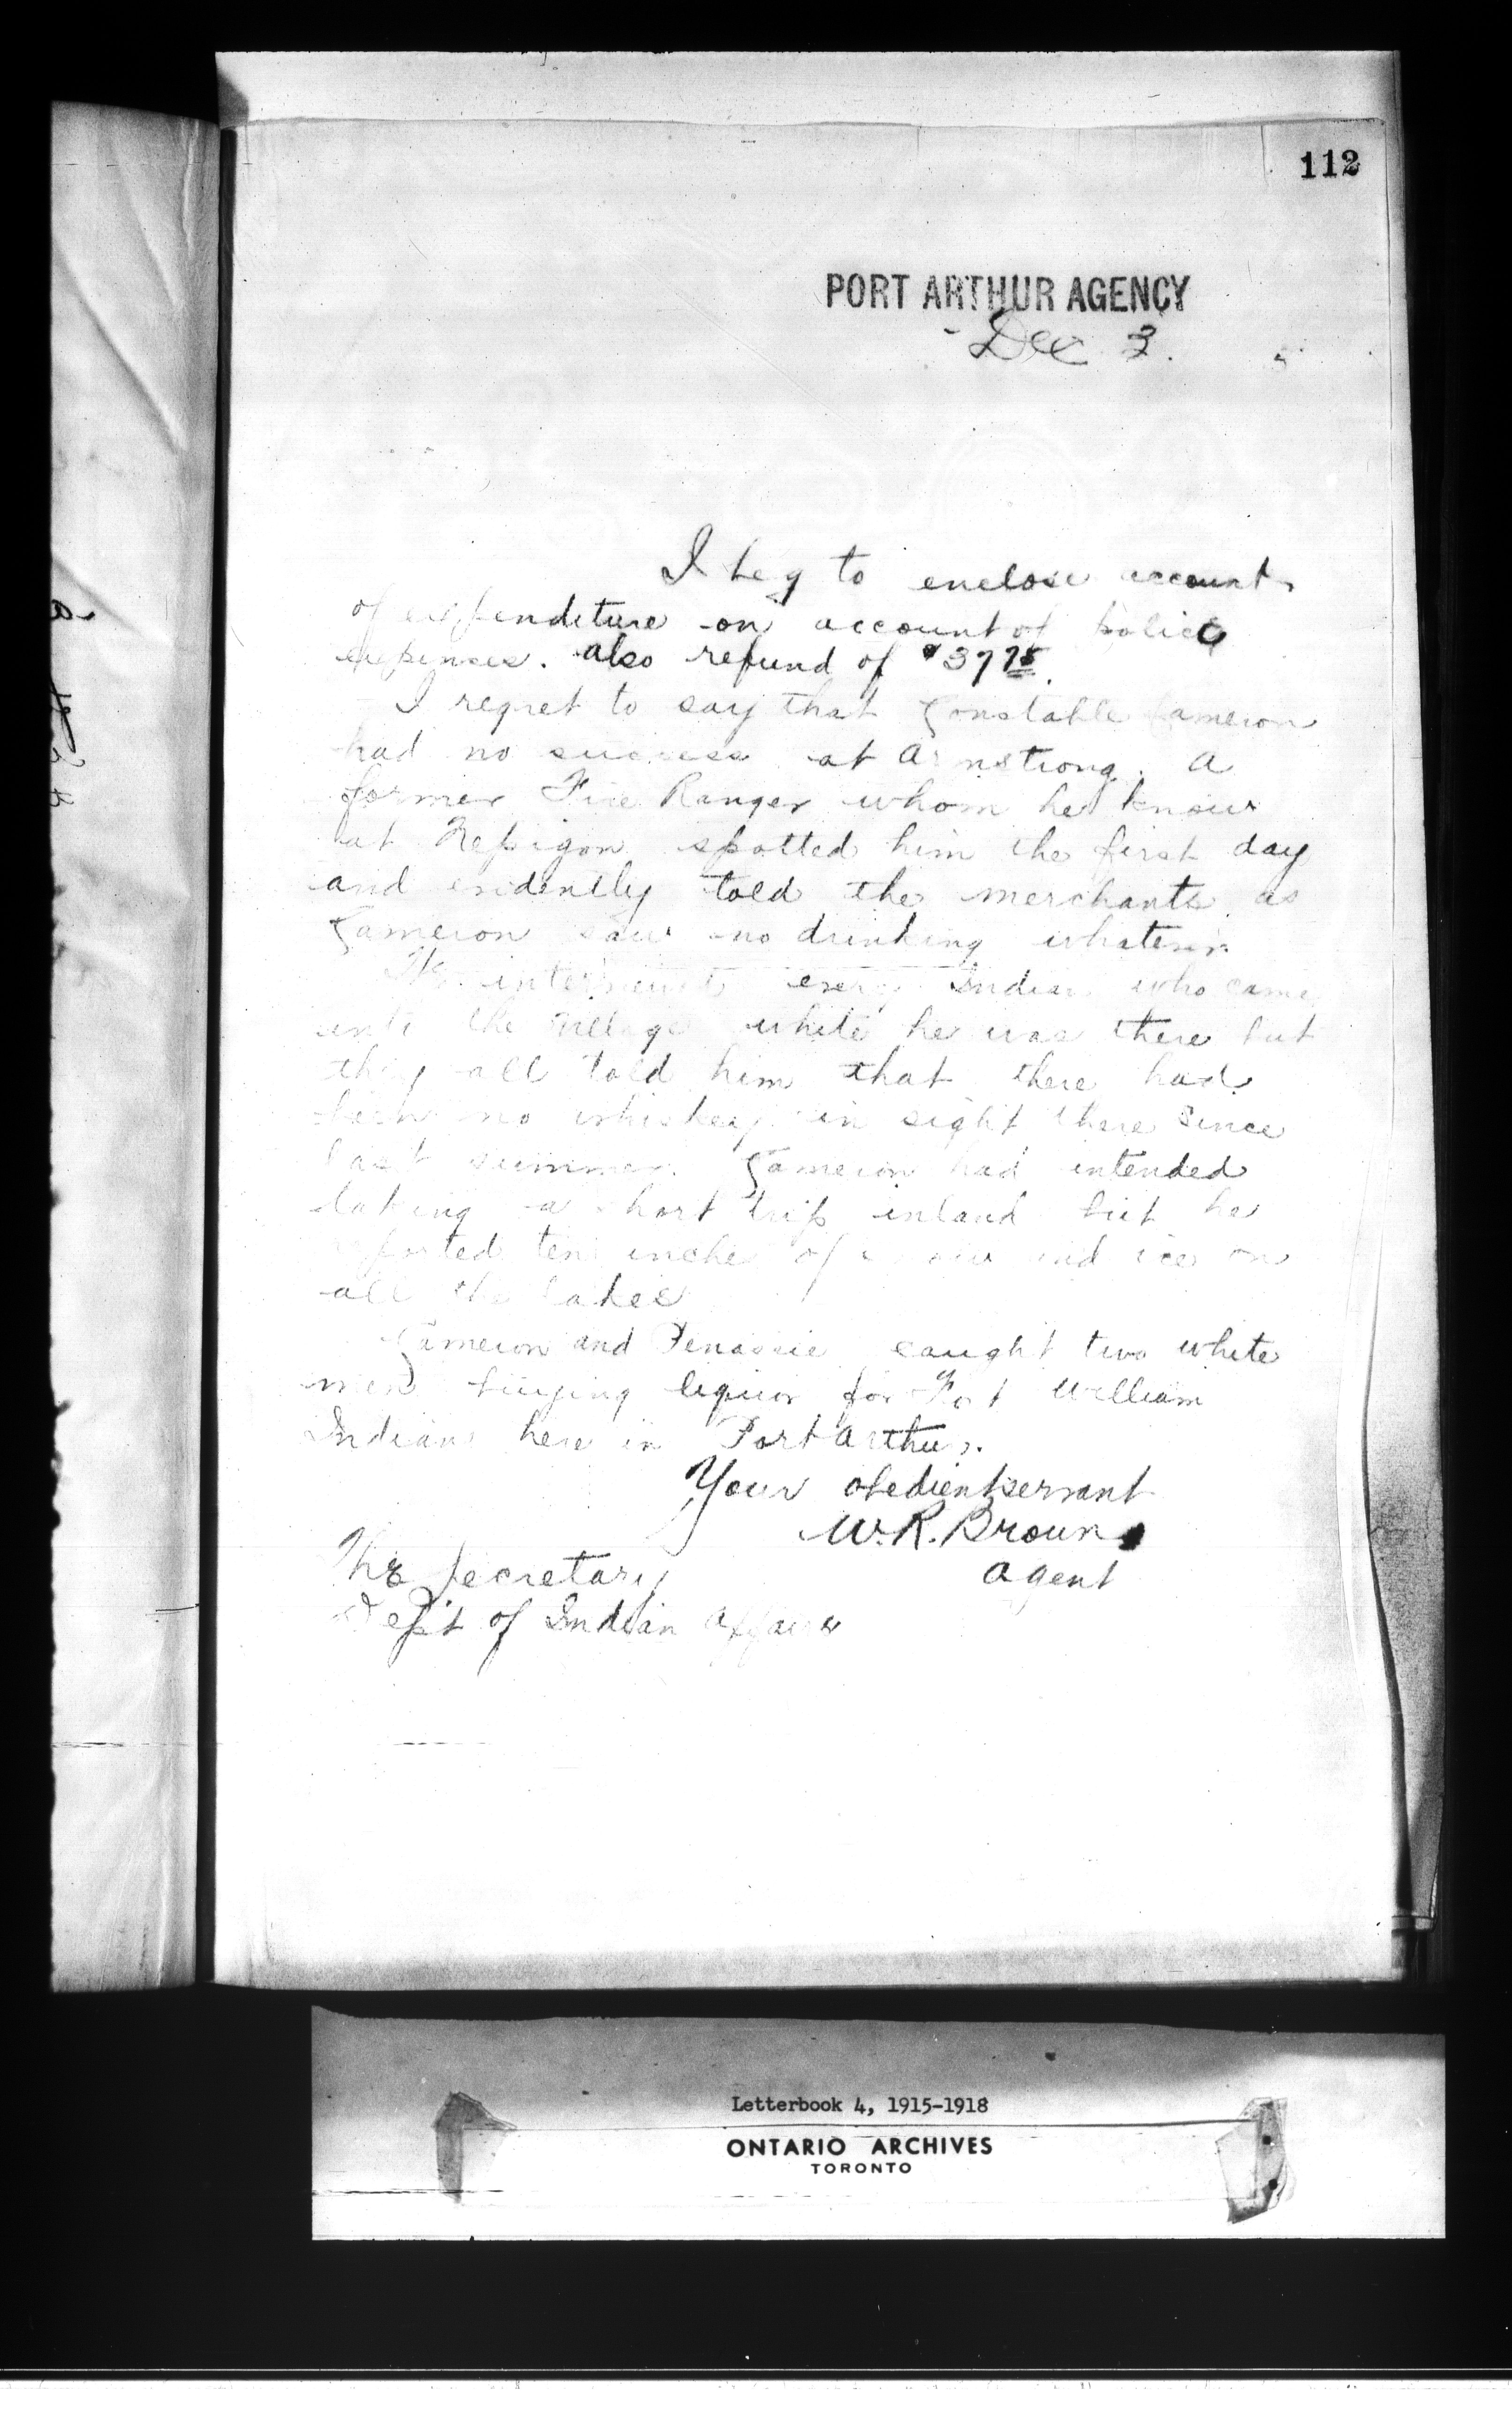 112
PORT ARTHUR AGENCY
Dec 3. 5
I beg to enclose account
of expenditure on account of police
expenses. also refund of $37 75.
I regret to say that Constable Cameron
had no success at Armstrong. A
former Fire Ranger whom he knew
at Nepigon spotted him the first day
and evidently told the merchants as
Cameron saw no drinking whatever
He interviewed every Indian who came
into the village while he was there but
they all told him that there had
been no whiskey in sight there since
last summer. Cameron had intended
taking a short trip inland but he
reported ten inches of snow and ice on
all the lakes
Cameron and Penassie caught two white
men buying liquor for Fort William
Indians here in Port Arthur.
Your obedient servant
W. R. Brown
Agent
The Secretary
Dep't of Indian Affairs
Letterbook 4, 1915-1918
ONTARIO ARCHIVES
TORONTO